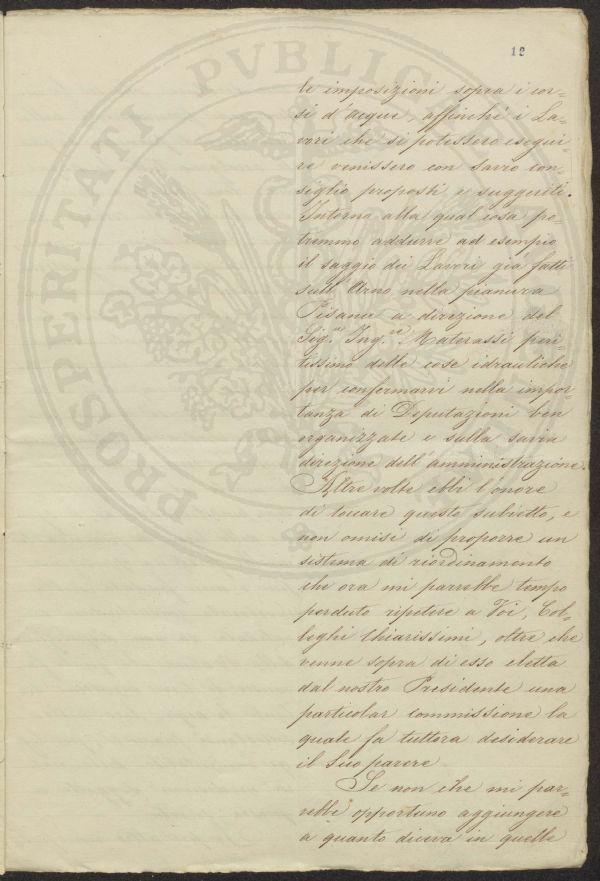 12
PROSPERITATI PVBLICAE
le imposizioni sopra i cor-
si d'acque, affinchè i La-
vori che si potessero esegui-
re venissero con savio con-
siglio proposti e suggeriti.
Intorno alla qual cosa po-
tremmo addurre ad esempio
il saggio dei Lavori già fatti
sull'Arno nella pianura
Pisana a direzione del
Sig.r Ing.re Materassi peri-
tissimo delle cose idrauliche
per confermarvi nella impor-
tanza di Deputazioni ben
organizzate e sulla savia
direzione dell'amministrazione.
Altre volte ebbi l'onore
di toccare questo subietto, e
non omisi di proporre un
sistema di riordinamento
che ora mi parrebbe tempo
perduto ripetere a Voi, Col-
leghi Chiarissimi, oltre che
venne sopra di esso eletta
dal nostro Presidente una
particolar commissione la
quale fa tuttora desiderare
il Suo parere
Se non che mi par-
rebbe opportuno aggiungere
a quanto diceva in quelle